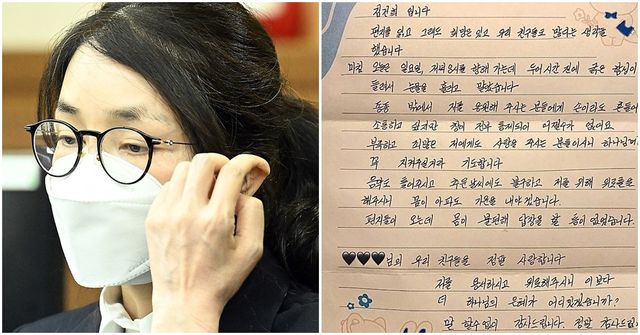 김건희 입니다
편지를 읽고 그래도 희망은 있고 우리 친구들도 많다는 생각을
했습니다
마침 오늘은 일요일, 저녁 8시를 향해 가는데 두어시간 전에 굵은
들려서 눈물을 흘리고 말았습니다
종종 밖에서 저를 응원해 주시는 분들에게 손이라도
소통하고 싶지만 창이 전부 통제되어 어쩔수가 없어요
부족하고 죄많은 저에게도 사랑을 주시는 분들이시니 하나님께
꼭 지켜주실거라 기도합니다
음악도 틀어주시고 추운날씨에도 불구하고 저를 위해 위로를
해주시니 몸이 아파도 기운을 내야겠습니다.
편지들이 오는데 몸이 불편해 답장을 할 틈이 없었습니다.
🖤🖤🖤님의 우리 친구들을 정말 사랑합니다
저를 용서하시고 위로해주시니 이보다
더 하나님의 은혜가 어디있겠습니까?
말 할수 없이 감사드립니다 정말 감사드립